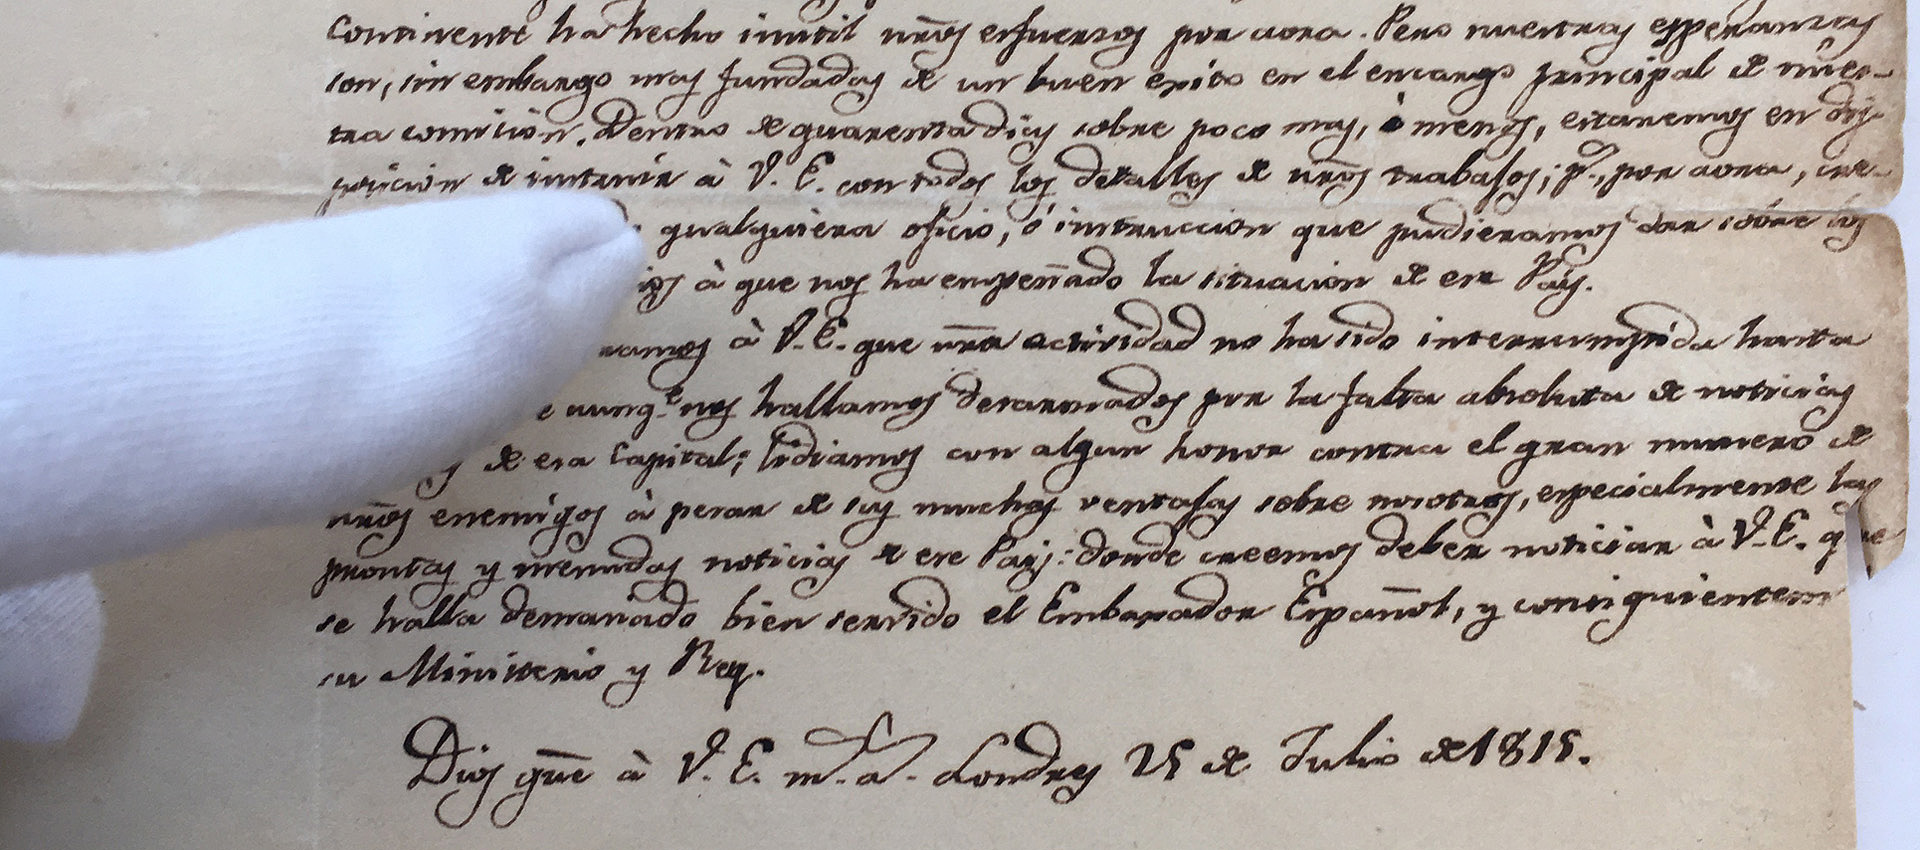 Continente ha hecho inutil nrōs esfuerzos por aora. Pero nuestras esperanzas
son, sin embargo mas fundadas de un buen exito en el encargo principal de nues-
tra comision. Dentro de quarenta dias sobre poco mas, ò menos, estaremos en dis-
posicion de instruir à V. E. con todos los detalles de nrōs trabajos; p.ͬ, por aora, cre-
qualquiera oficio, ó instruccion que pudieramos dar sobre los
à que nos ha empeñado la situacion de ese Pais.
ramos à V. E. que nrā actividad no ha sido interrumpida hasta
e aunq.ͤ nos hallamos desarmados por la falta absoluta de noticias
de esa Capital; lidiamos con algun honor contra el gran numero de
nrōs enemigos à pesar de sus muchas ventajas sobre nosotros, especialmente las
prontas y menudas noticias de ese Pais: donde creemos deber noticiar à V. E. que
se halla demasiado bien servido el Embaxador Español, y consiguientem
su Ministerio y Rey.
Dios gūe à V. E. m.ˢ a.ˢ Londres 25 de Julio de 1815.